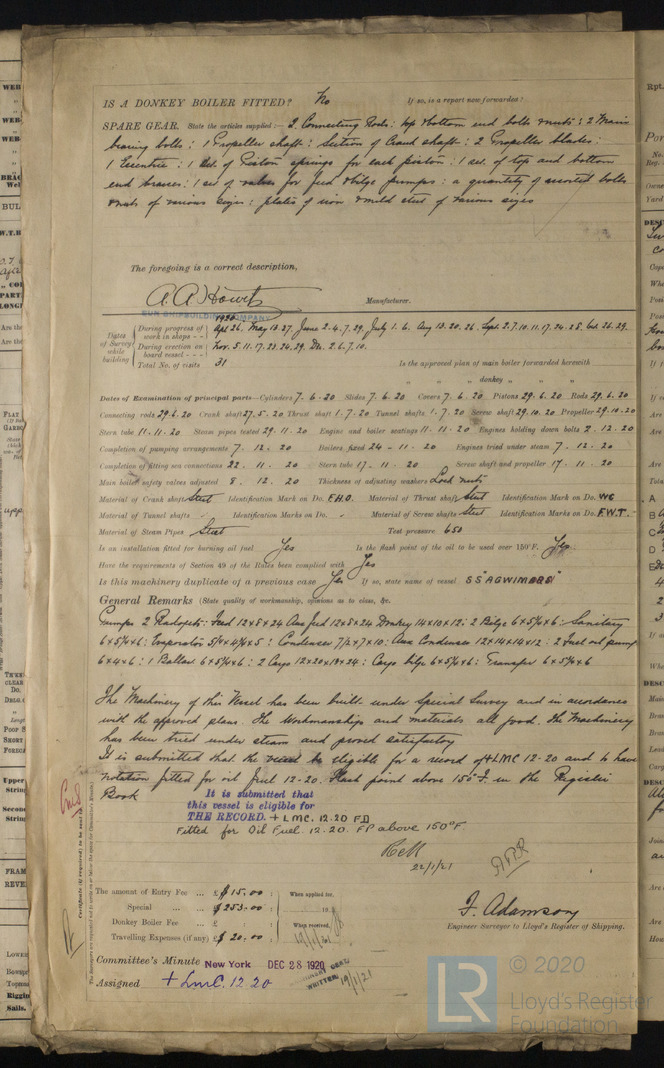 IS A DONKEY BOILER FITTED? No If so, is a report now forwarded?
SPARE GEAR. State the articles supplied:— 2 Connecting Rods: top & bottom end bolts & nuts; 2 Main
bearing bolts; 1 Propeller shaft; Section of Crank shaft; 2 Propeller blades;
1 Eccentric; 1 set of Piston springs for each piston; 1 set of top and bottom
end brasses; 1 set of valves for feed & bilge pumps; a quantity of assorted bolts
& nuts of various sizes; plates of iron & mild steel of various sizes
The foregoing is a correct description,
Manufacturer.
SUN SHIPBUILDING COMPANY
1920
Dates of Survey while building
During progress of work in shops - - Apl 26. May 13. 27. June 2. 4. 7. 29. July 1. 6. Aug 13. 20. 26. Sept. 2. 7. 10. 11. 17. 24. 28. Oct. 26. 29.
During erection on board vessel - - - Nov. 5. 11. 17. 23. 24. 29. Dec. 2. 6. 7. 10.
Total No. of visits 31
Is the approved plan of main boiler forwarded herewith
" " " donkey " " "
Dates of Examination of principal parts—Cylinders 7. 6. 20 Slides 7. 6. 20 Covers 7. 6. 20 Pistons 29. 6. 20 Rods 29. 6. 20
Connecting rods 29. 6. 20 Crank shaft 27. 5. 20 Thrust shaft 1. 7. 20 Tunnel shafts 1. 7. 20 Screw shaft 29. 10. 20 Propeller 29. 10. 20
Stern tube 11. 11. 20 Steam pipes tested 29. 11. 20 Engine and boiler seatings 11. 11. 20 Engines holding down bolts 2. 12. 20
Completion of pumping arrangements 7. 12. 20 Boilers fixed 24 - 11. 20 Engines tried under steam 7. 12. 20
Completion of fitting sea connections 22. 11. 20 Stern tube 17. 11. 20 Screw shaft and propeller 17. 11. 20
Main boiler safety valves adjusted 8. 12. 20 Thickness of adjusting washers Lock nuts
Material of Crank shaft Steel Identification Mark on Do. F.H.O. Material of Thrust shaft Steel Identification Mark on Do. WG
Material of Tunnel shafts - Identification Marks on Do. - Material of Screw shafts Steel Identification Marks on Do. F.W.T.
Material of Steam Pipes Steel Test pressure 650
Is an installation fitted for burning oil fuel Yes Is the flash point of the oil to be used over 150°F. Yes
Have the requirements of Section 49 of the Rules been complied with Yes
Is this machinery duplicate of a previous case Yes If so, state name of vessel SS "AGWIMOORS"
General Remarks (State quality of workmanship, opinions as to class, &c.
Pumps 2 Feed 12x8x24 Aux feed 12x8x24 Donkey 14x10x12; 2 Bilge 6x5¾x6: Sanitary
6x5¾x6; Evaporator 5¼x4¾x5; Condenser 7½x7x10; Aux Condenser 12x14x14x12; 2 Fuel oil pump
6x4x6; 1 Ballast 6x5¾x6; 2 Cargo 12x20x18x24; Cargo bilge 6x5¾x6; Transfer 6x5¾x6
The Machinery of this Vessel has been built under Special Survey and in accordance
with the approved plans. The Workmanship and materials all good. The Machinery
has been tried under steam and proved satisfactory
It is submitted that the vessel be eligible for a record of +LMC 12-20 and to have
notation fitted for oil fuel 12-20. Flash point above 150°F. in the Register
Book
It is submitted that
this vessel is eligible for
THE RECORD. + LMC. 12.20 FD
Fitted for Oil Fuel. 12.20. FP above 150°F.
22/1/21
The amount of Entry Fee ... $ 15.00 When applied for,
Special ... $ 253.00
Donkey Boiler Fee ... £ When received,
Travelling Expenses (if any) $ 20.00 19/1/21
F. Adamson
Engineer Surveyor to Lloyd's Register of Shipping.
Committee's Minute New York DEC 28 1920
Assigned + LMC. 12 20
MACHINERY CERT. WRITTEN 19/1/21
Certificate (if required) to be sent to
© 2020
LR Lloyd's Register
Foundation